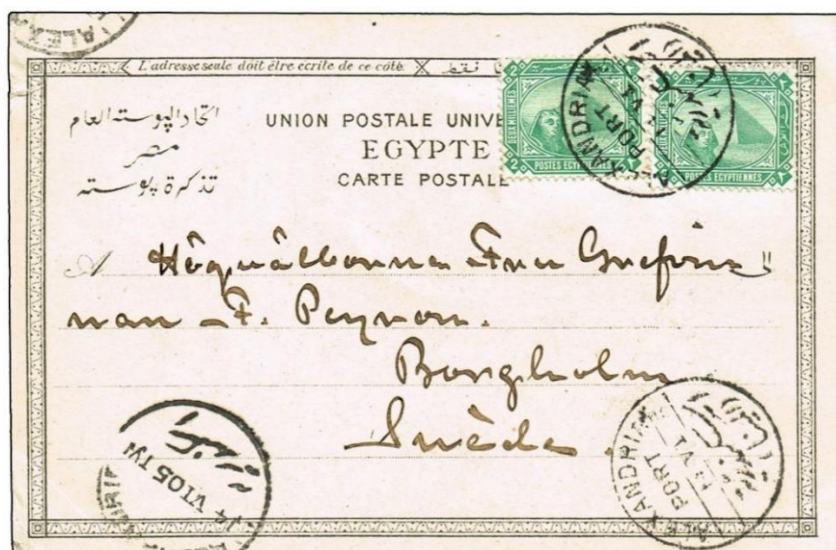 L'adresse seule doit être écrite de ce côté. فقط
اتحاد البوسته العام
مصر
تذكرة بوسته
UNION POSTALE UNIVE
EGYPTE
CARTE POSTALE
2 DEUX MILLIEMES 2
POSTES EGYPTIENNES
POSTES EGYPTIENNES
ALEXANDRIA
PORT
VI
A Högvälborna Fru Grefvinnan F. Peyron.
Borgholm
Suède.
14 VI 05
ALEXANDRIA
PORT
VI